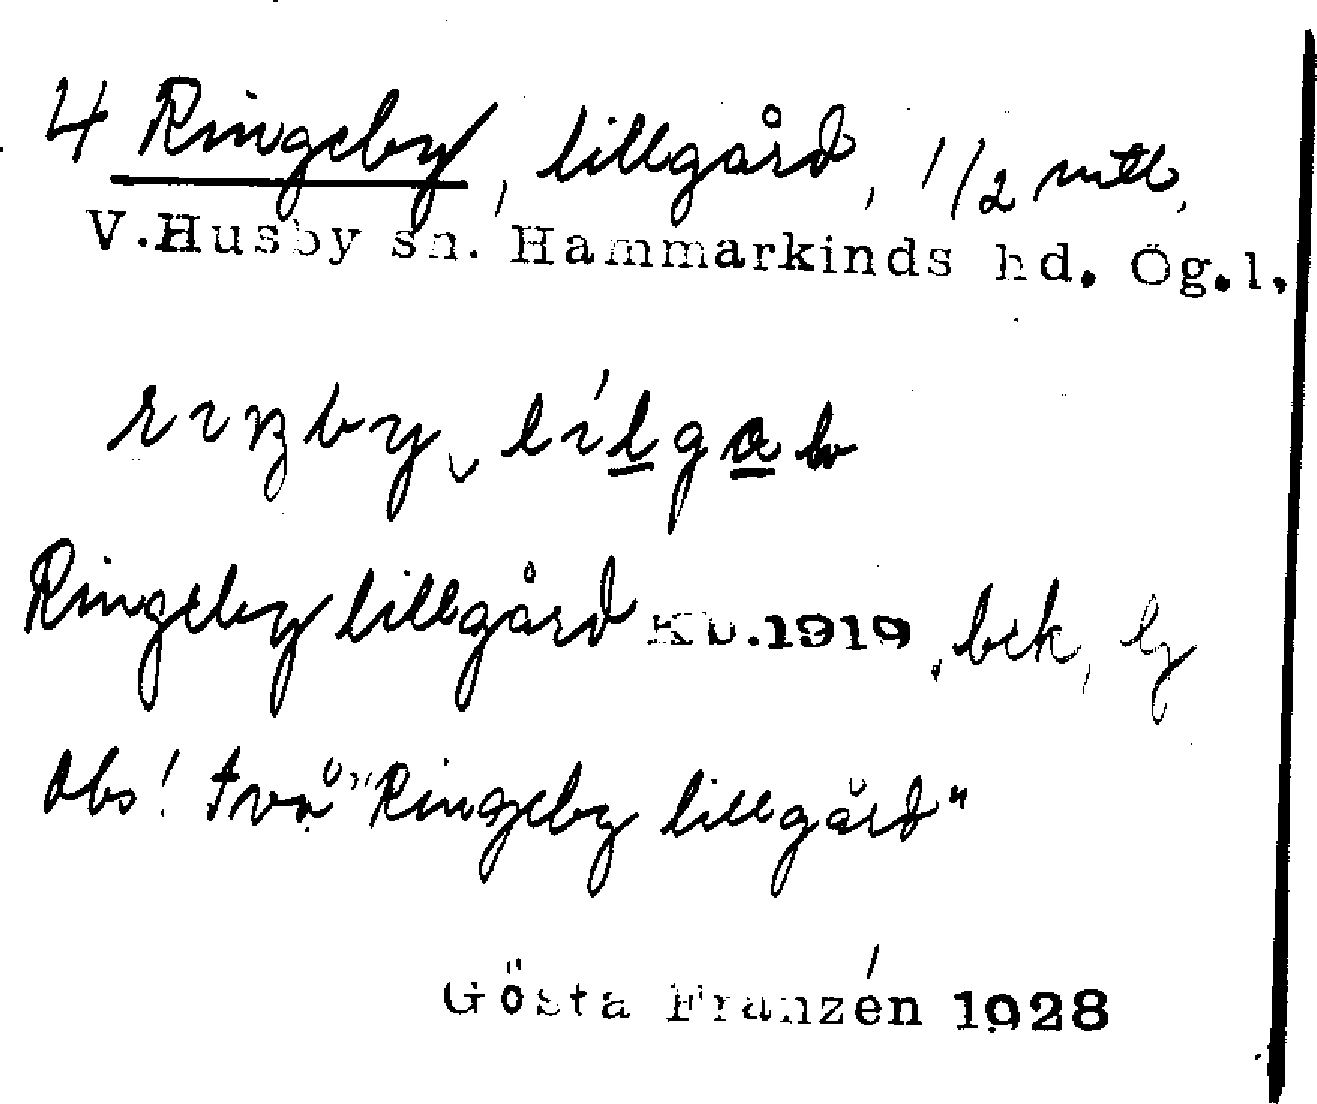 4 Ringeby, lillgård, 1/2 mtl,
V.Husby sn. Hammarkinds hd. Ög.l.
Ringeby lillgård Kb.1919, bek,
Obs! Två "Ringeby lillgård"
Gösta Franzén 1928